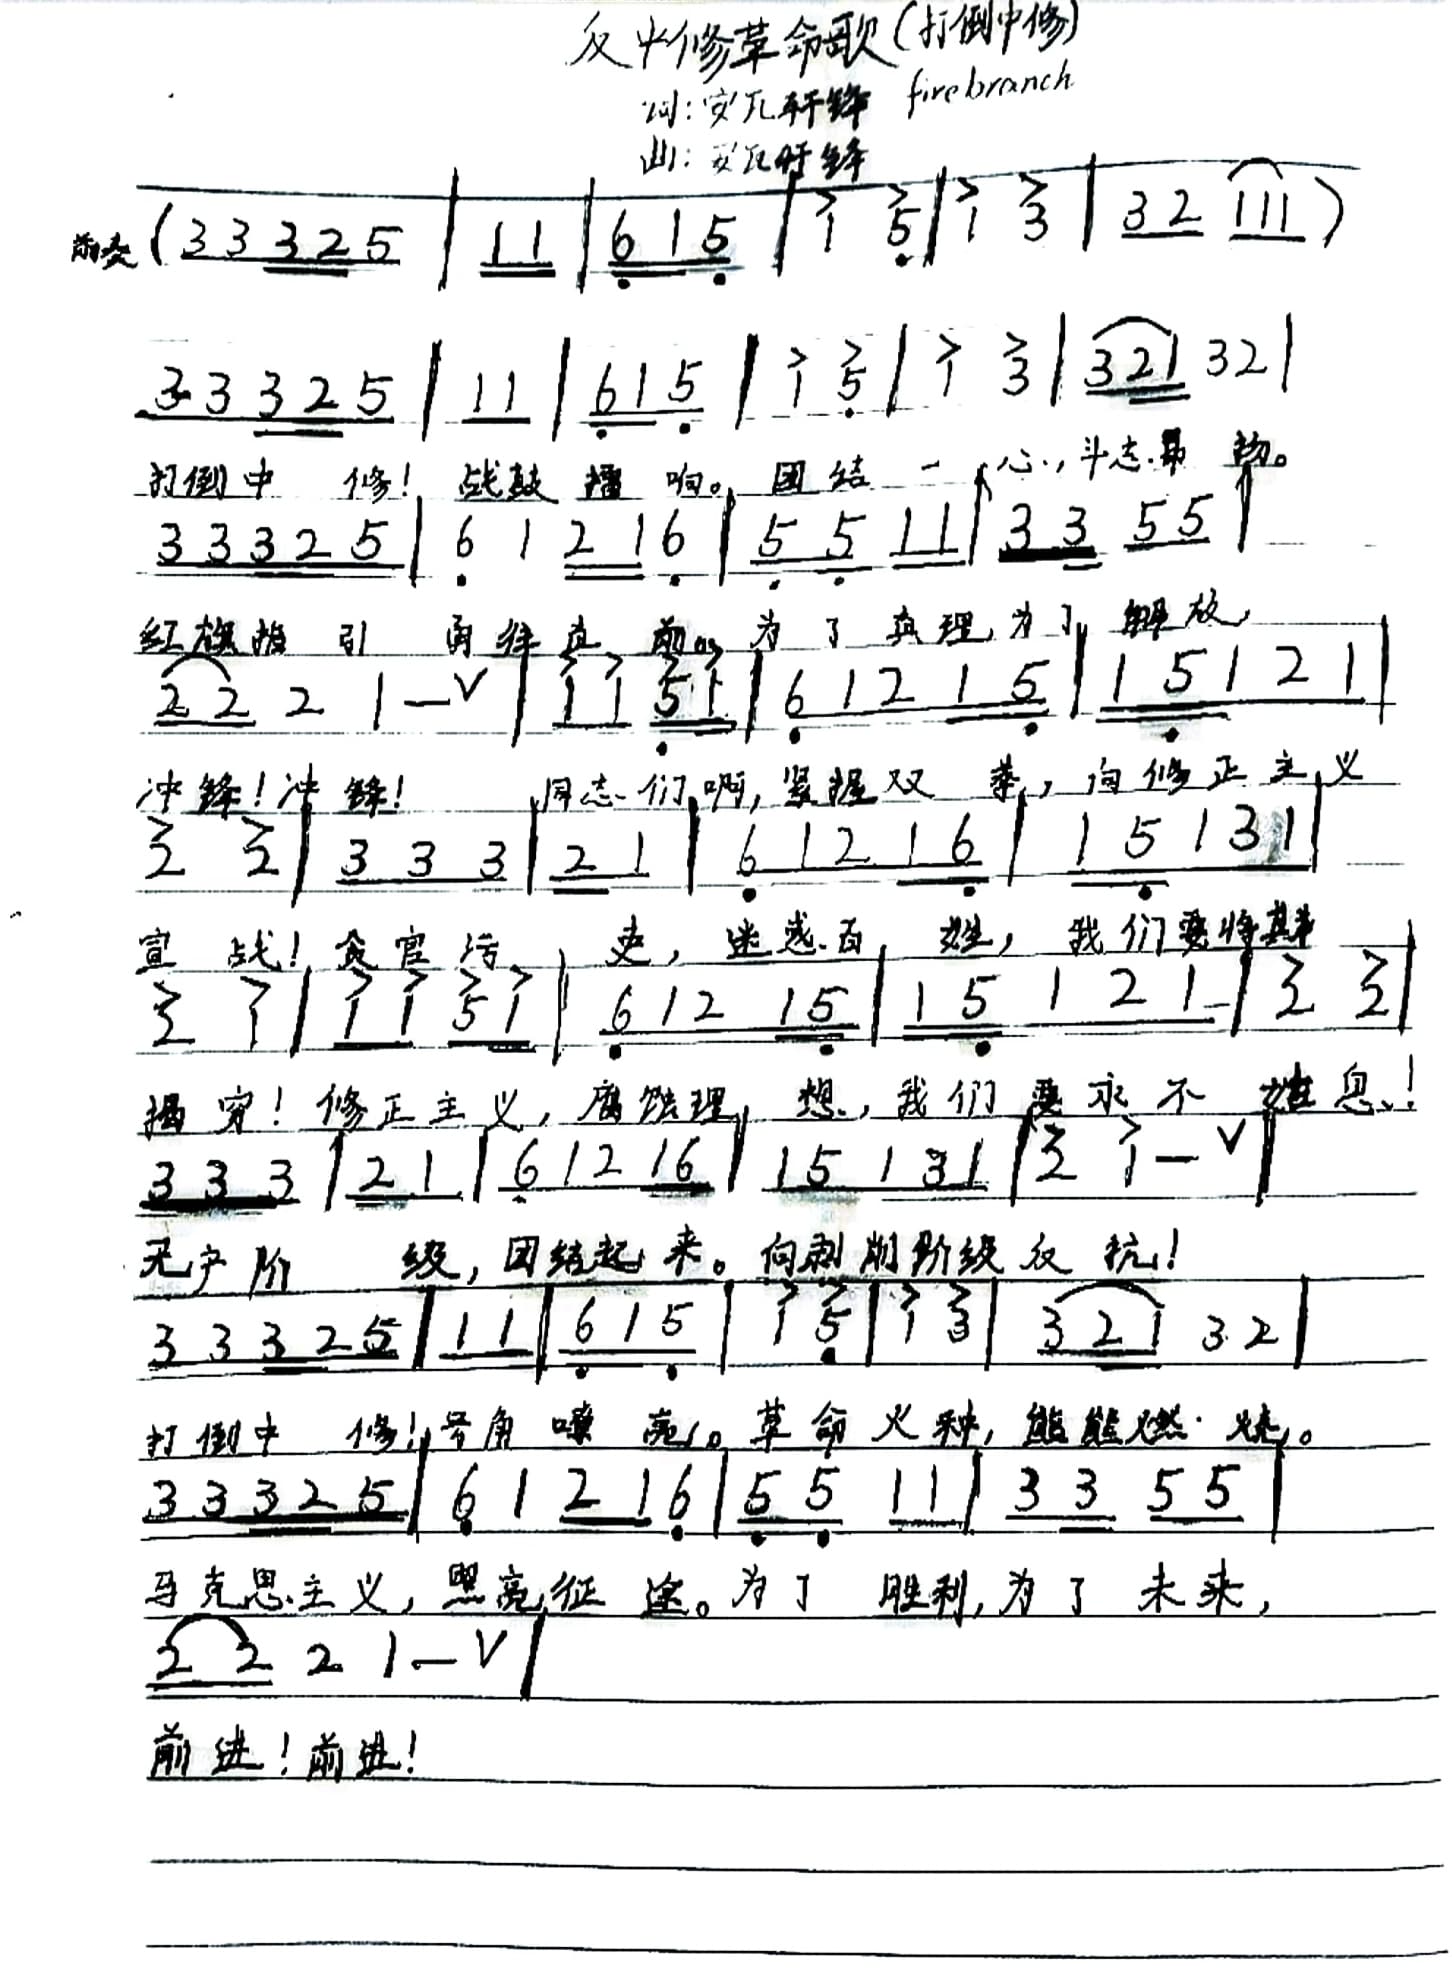 反中修革命歌(打倒中修)
词:安瓦轩锋 firebranch
曲:安瓦轩锋
前奏(3 3 3 2 5 | 1 1 | 6 1 5 | 1 5 | 1 3 | 3 2 1 1 1 )
3 3 3 2 5 | 1 1 | 6 1 5 | 1 5 | 1 3 | 3 2 1 3 2 |
打倒中 修! 战鼓擂 响。团结一心,斗志昂扬。
3 3 3 2 5 | 6 1 2 1 6 | 5 5 1 1 | 3 3 5 5 |
红旗指引 勇往直前。为了真理,为了解放,
2 2 2 1 — V | 1 1 5 1 | 6 1 2 1 5 | 1 5 1 2 1 |
冲锋!冲锋! 同志们啊,紧握双拳,向修正主义
2 2 | 3 3 3 | 2 1 | 6 1 2 1 6 | 1 5 1 3 1 |
宣战!贪官污 吏,迷惑百姓,我们要将其
2 1 | 1 1 5 1 | 6 1 2 1 5 | 1 5 1 2 1 | 2 2 |
揭穿!修正主义,腐蚀理想,我们要永不姑息!
3 3 3 | 2 1 | 6 1 2 1 6 | 1 5 1 3 1 | 2 1 — V |
无产阶 级,团结起来。向剥削阶级反抗!
3 3 3 2 5 | 1 1 | 6 1 5 | 1 5 | 1 3 | 3 2 1 3 2 |
打倒中 修!号角嘹亮。革命火种,熊熊燃烧。
3 3 3 2 5 | 6 1 2 1 6 | 5 5 1 1 | 3 3 5 5 |
马克思主义,照亮征途。为了胜利,为了未来,
2 2 2 1 — V |
前进!前进!